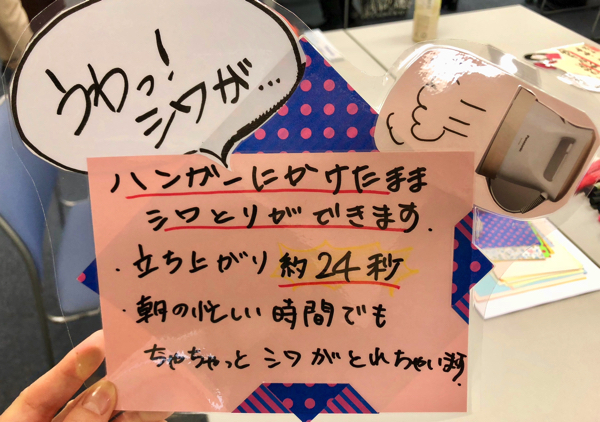 うわっ!
シワが...
ハンガーにかけたまま
シワとりができます.
・立ち上がり 約24秒
・朝の忙しい時間でも
ちゃちゃっと シワがとれちゃいます